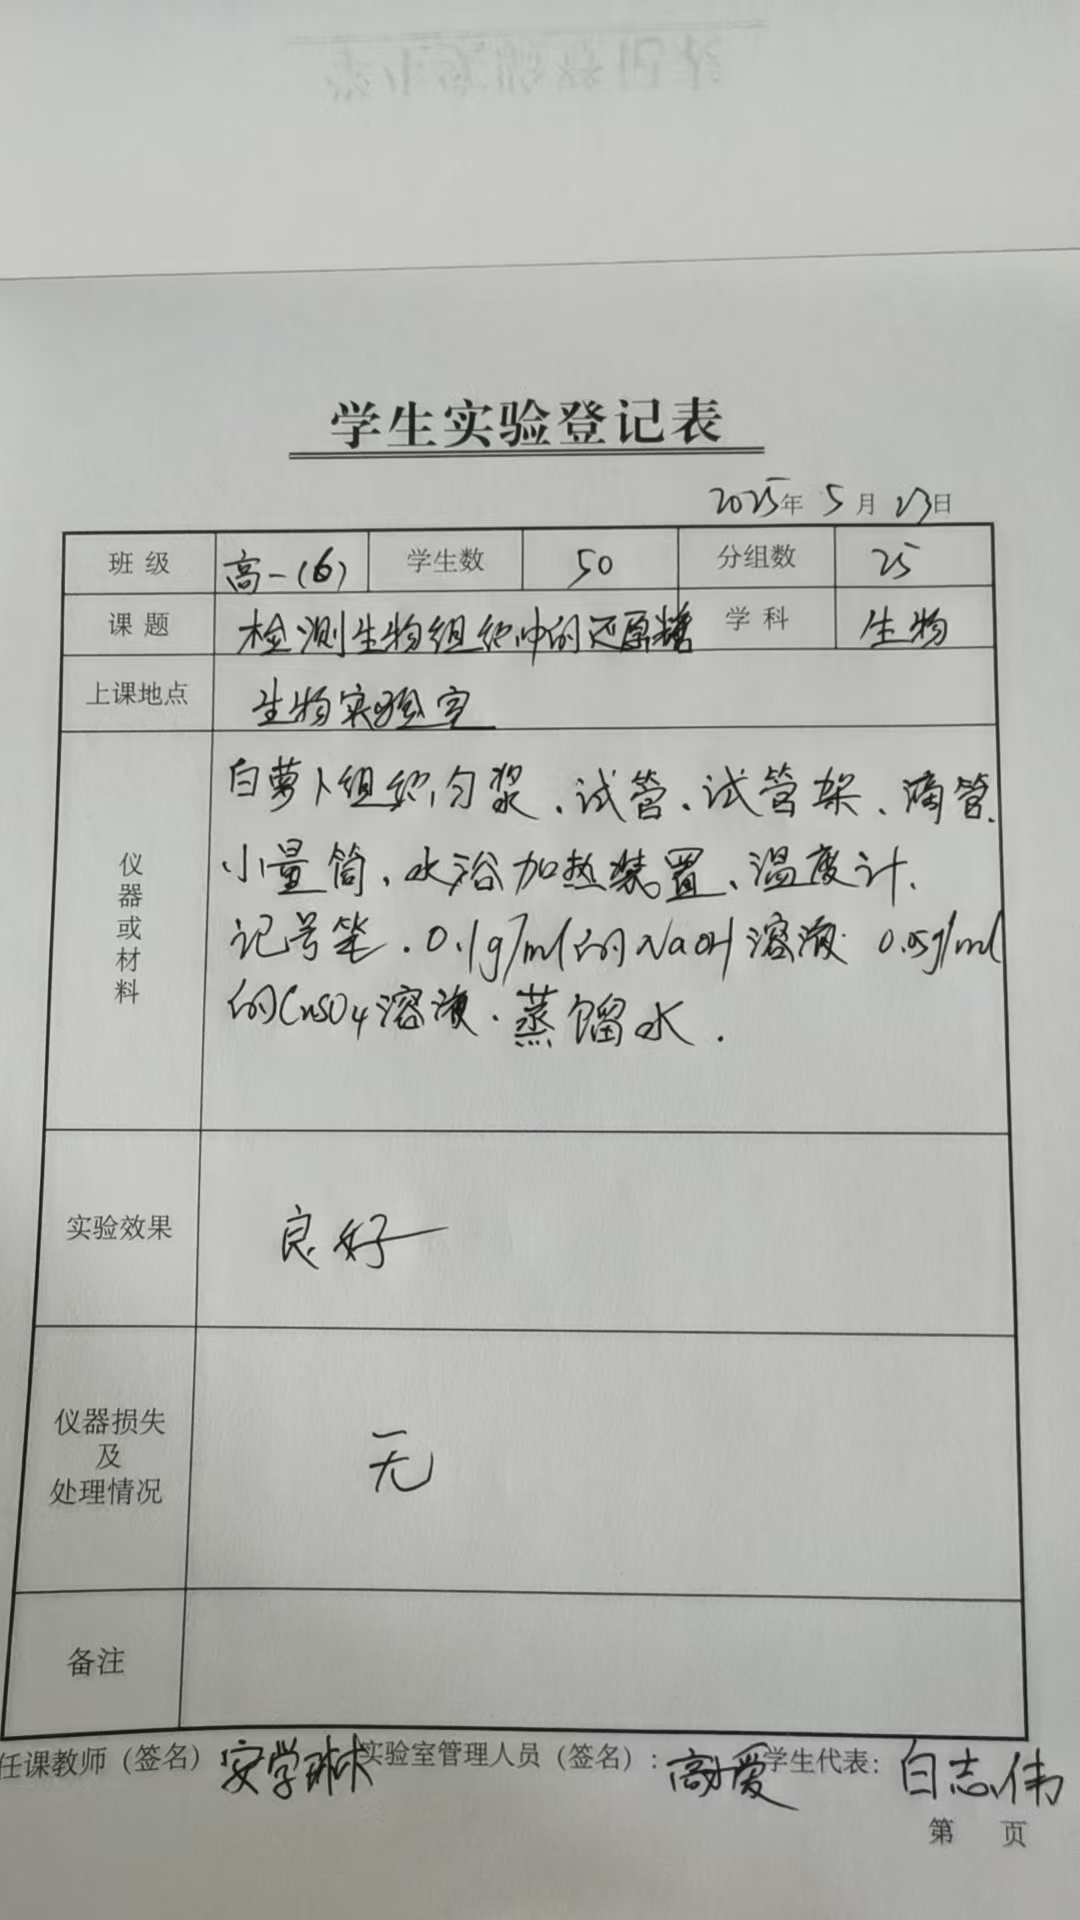 学生实验登记表
2025年 5月 23日
班 级 高一(6) 学生数 50 分组数 25
课 题 检测生物组织中的还原糖 学 科 生物
上课地点 生物实验室
仪器或材料
白萝卜组织匀浆、试管、试管架、滴管、
小量筒、水浴加热装置、温度计、
记号笔、0.1g/ml的NaOH溶液、0.05g/ml
的CuSO4溶液、蒸馏水.
实验效果 良好
仪器损失
及
处理情况
无
备注
任课教师（签名） 安学琳 实验室管理人员（签名）： 高爱 学生代表： 白志伟
第 页